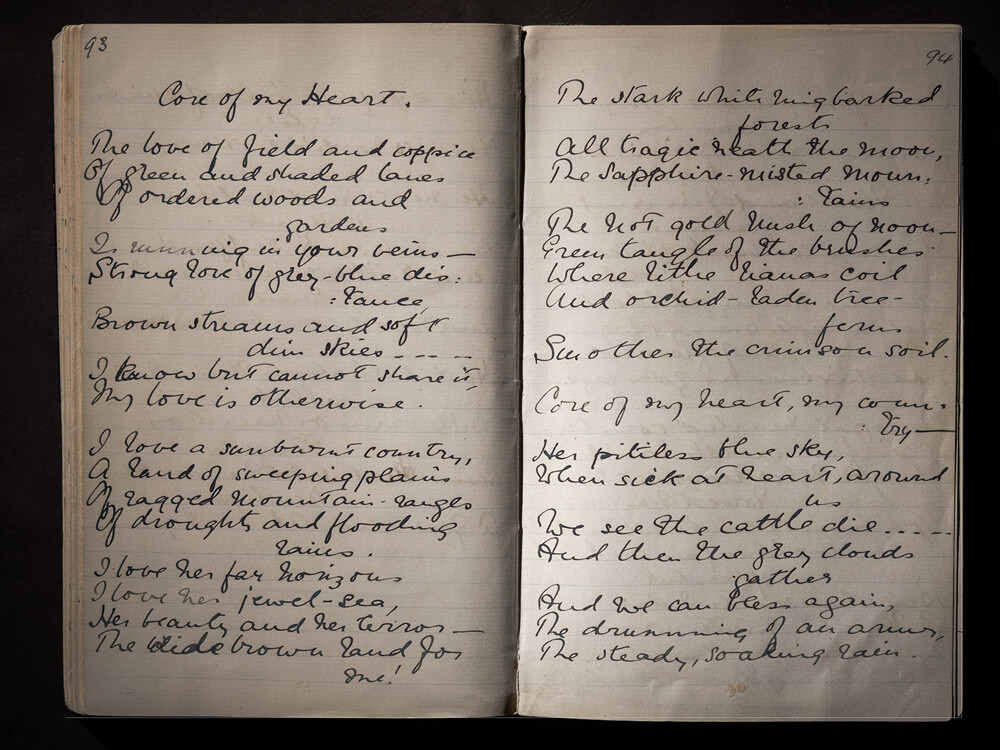 93
Core of my Heart.
The love of field and coppice
Of green and shaded lanes
Of ordered woods and
gardens
Is running in your veins—
Strong love of grey-blue dis:
:tance
Brown streams and soft
dim skies - - - -
I know but cannot share it,
My love is otherwise.
I love a sunburnt country,
A land of sweeping plains
Of ragged mountain-ranges
Of droughts and flooding
rains.
I love her far horizons
I love her jewel-sea,
Her beauty and her terror—
The wide brown land for
me!
94
The stark white ringbarked
forests
All tragic 'neath the moon,
The sapphire-misted moun:
:tains
The hot gold hush of noon—
Green tangle of the brushes
Where lithe lianas coil
And orchid-laden tree-
ferns
Smother the crimson soil.
Core of my heart, my coun:
:try—
Her pitiless blue sky,
When sick at heart, around
us
We see the cattle die.....
And then the grey clouds
gather
And we can bless again,
The drumming of an army,
The steady, soaking rain.